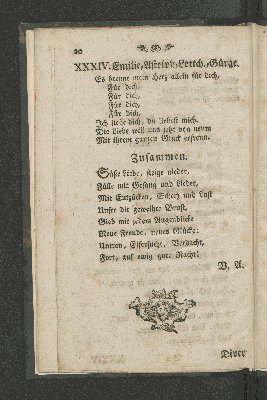 20
XXXIV. Emilie, Astolph, Lottch. Gürge.
Es brenne mein Herz allein für dich,
Für dich,
Für dich,
Für dich,
Für dich,
Ich liebe dich, du liebest mich.
Die Liebe will uns jetzt von neuem
Mit ihrem ganzen Glück erfreun.
Zusammen.
Süße Liebe, steige nieder,
Fülle mit Gesang und Lieder,
Mit Entzücken, Scherz und Lust
Unsre dir geweihte Brust,
Gieb mit jedem Augenblicke
Neue Freude, neues Glücke:
Untreu, Eifersucht, Verdacht,
Fort, auf ewig gute Nacht!
V. A.
Diver